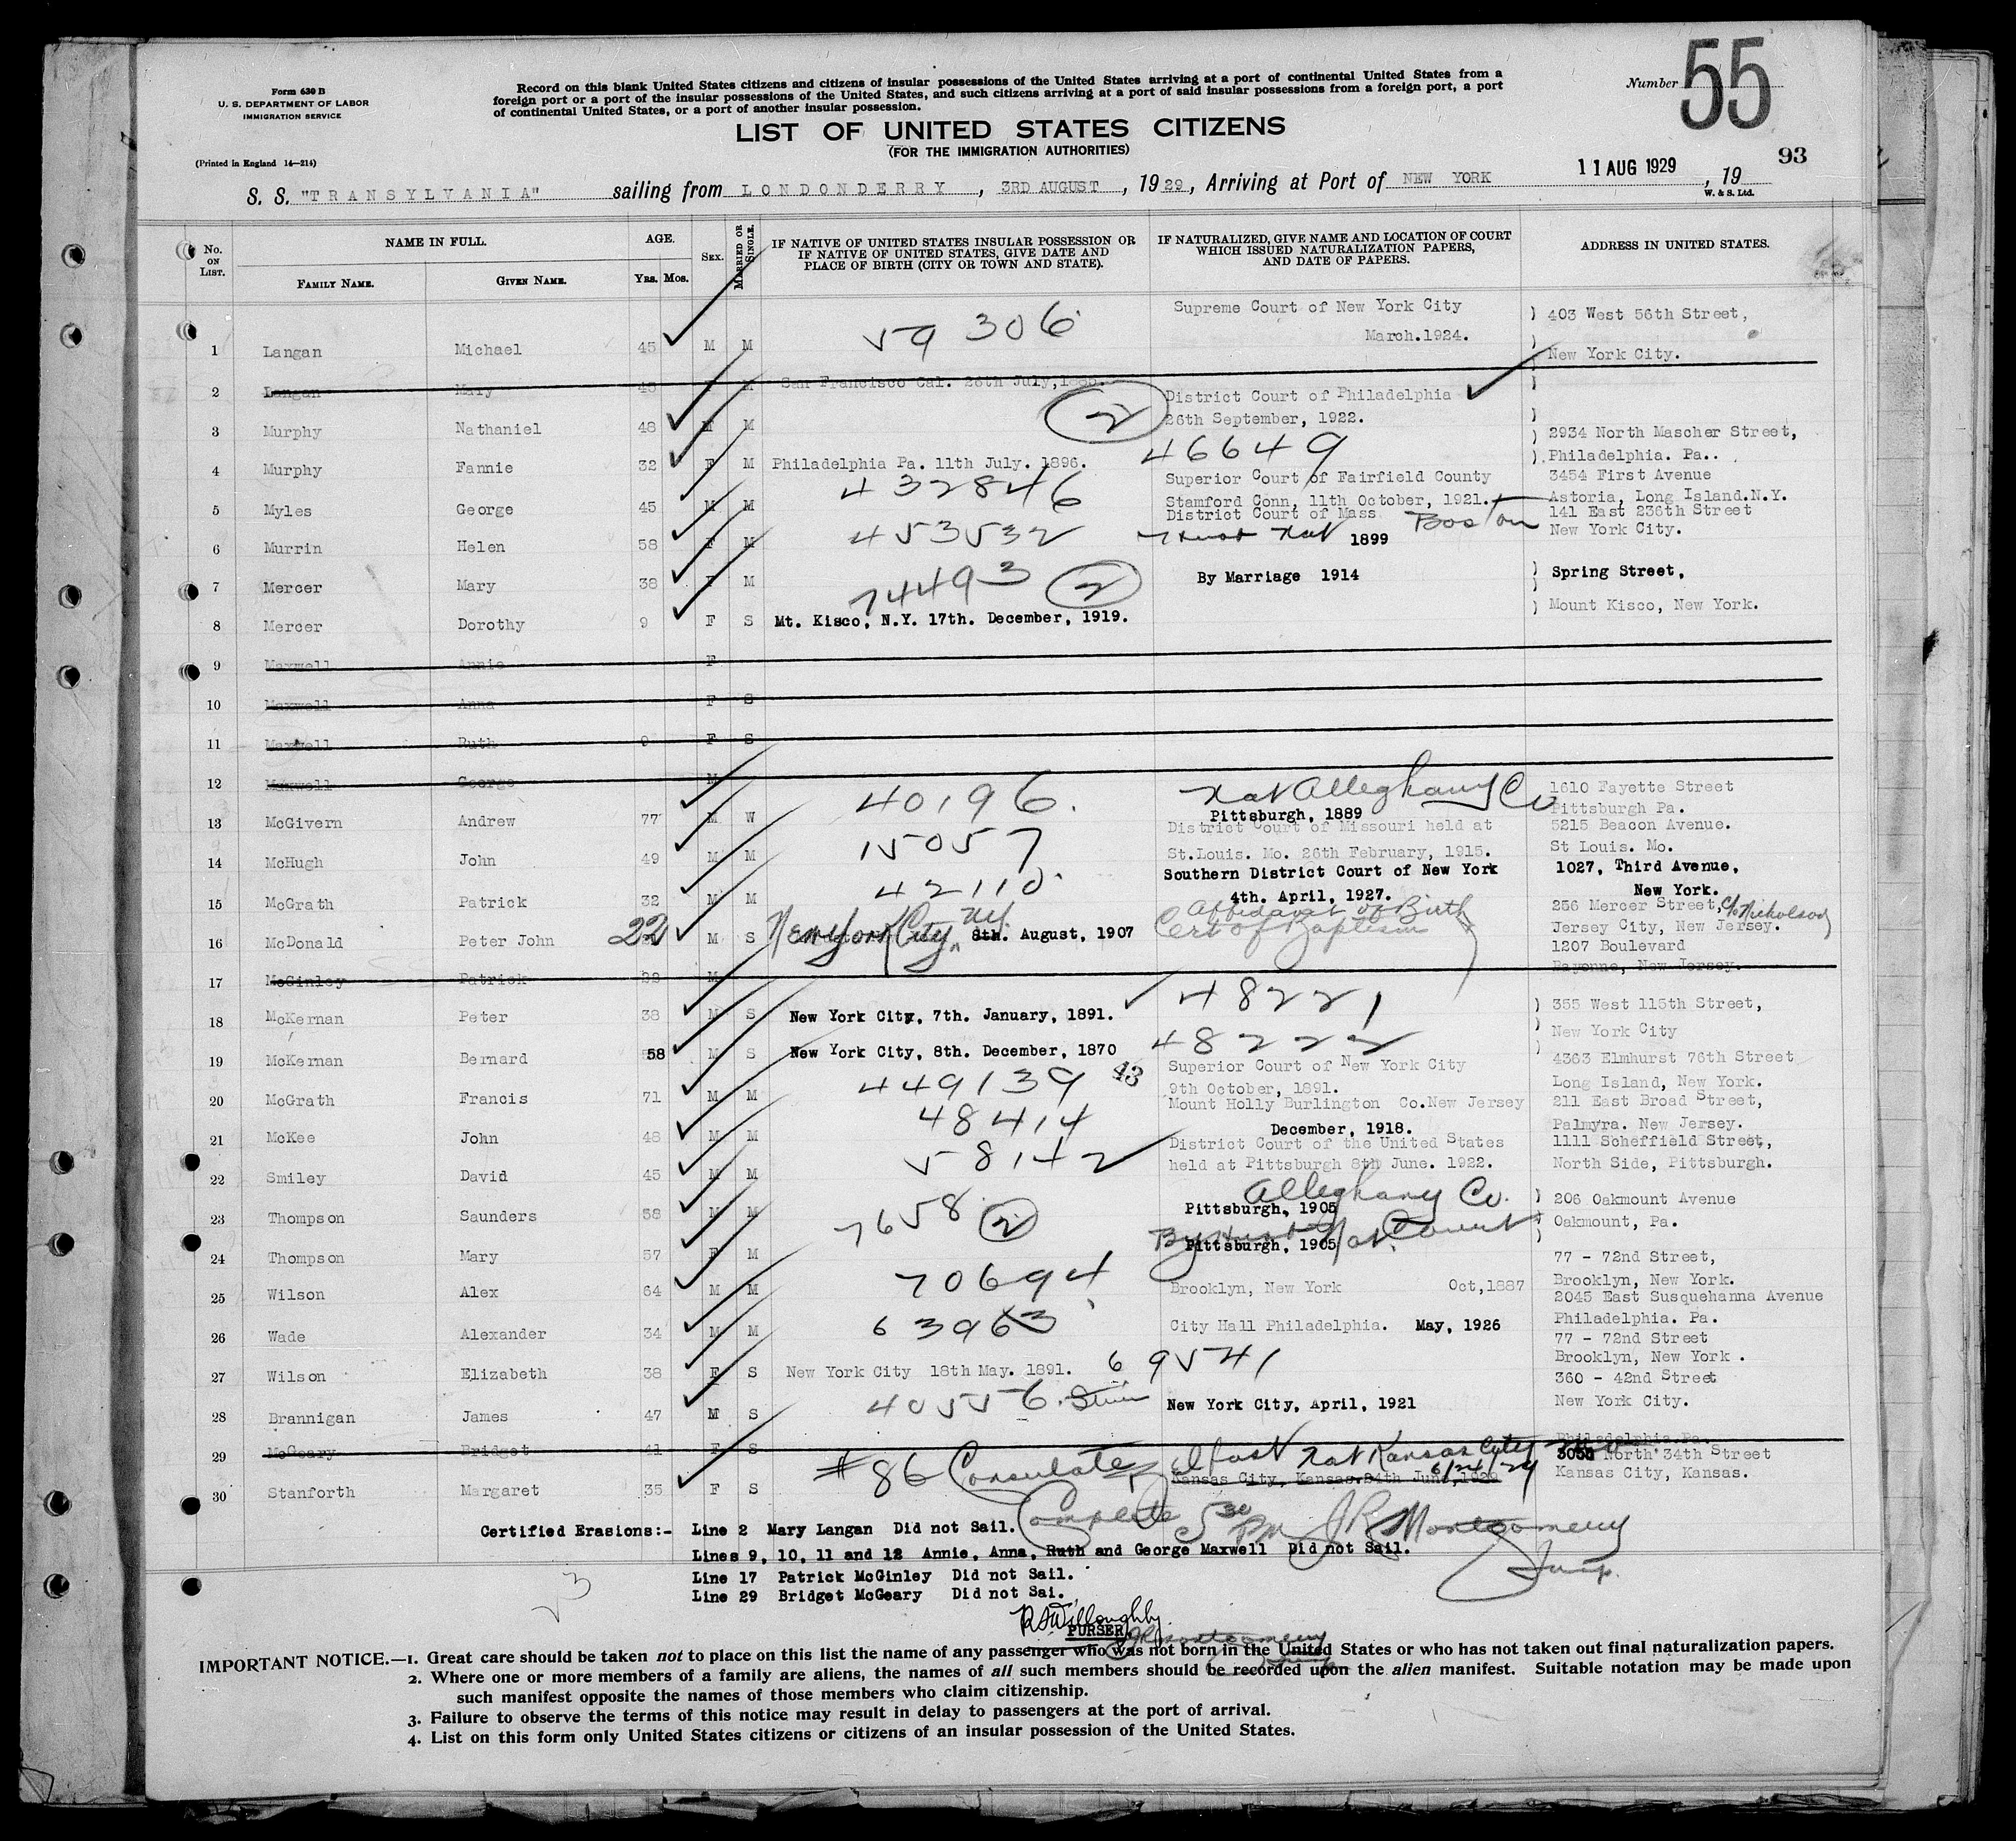 Form 630 B
U. S. DEPARTMENT OF LABOR
IMMIGRATION SERVICE
(Printed in England 14—214)
Record on this blank United States citizens and citizens of insular possessions of the United States arriving at a port of continental United States from a
foreign port or a port of the insular possessions of the United States, and such citizens arriving at a port of said insular possessions from a foreign port, a port
of continental United States, or a port of another insular possession.
Number 55
LIST OF UNITED STATES CITIZENS
(FOR THE IMMIGRATION AUTHORITIES)
93
S. S. "TRANSYLVANIA" sailing from LONDONDERRY, 3RD AUGUST, 1929, Arriving at Port of NEW YORK 11 AUG 1929, 19
W. & S. Ltd.
No. ON LIST. NAME IN FULL. FAMILY NAME. GIVEN NAME. AGE. Yrs. Mos. SEX. MARRIED OR SINGLE. IF NATIVE OF UNITED STATES INSULAR POSSESSION OR IF NATIVE OF UNITED STATES, GIVE DATE AND PLACE OF BIRTH (CITY OR TOWN AND STATE). IF NATURALIZED, GIVE NAME AND LOCATION OF COURT WHICH ISSUED NATURALIZATION PAPERS, AND DATE OF PAPERS. ADDRESS IN UNITED STATES.
1 Langan Michael 45 M M 59306 Supreme Court of New York City March.1924. 403 West 56th Street, New York City.
2 Langan Mary San Francisco Cal. 26th July,
3 Murphy Nathaniel 48 M M 2 District Court of Philadelphia 26th September, 1922. 2934 North Mascher Street,
4 Murphy Fannie 32 F M Philadelphia Pa. 11th July. 1896. 46649 Philadelphia. Pa..
5 Myles George 45 M M 432846 Superior Court of Fairfield County Stamford Conn, 11th October, 1921. 3454 First Avenue Astoria, Long Island.N.Y.
6 Murrin Helen 58 F M 453532 District Court of Mass Boston Nat 1899 141 East 236th Street New York City.
7 Mercer Mary 38 F M 74493 2 By Marriage 1914 Spring Street,
8 Mercer Dorothy 9 F S Mt. Kisco, N.Y. 17th. December, 1919. Mount Kisco, New York.
9 Maxwell Annie F
10 Maxwell Anna F S
11 Maxwell Ruth 9 F S
12 Maxwell George M
13 McGivern Andrew 77 M W 40196. Nat Alleghany Co Pittsburgh, 1889 1610 Fayette Street Pittsburgh Pa.
14 McHugh John 49 M M 15057 District Court of Missouri held at St.Louis. Mo. 26th February, 1915. 5215 Beacon Avenue. St Louis. Mo.
15 McGrath Patrick 32 M M 42110 Southern District Court of New York 4th. April, 1927. 1027, Third Avenue, New York.
16 McDonald Peter John 22 M S New York City NY. 8th. August, 1907 Affidavit of Birth Cert of Baptism 256 Mercer Street, c/o Nicholson Jersey City, New Jersey.
17 McGinley Patrick M 1207 Boulevard Bayonne, New Jersey.
18 McKernan Peter 38 M S New York City, 7th. January, 1891. 48221 355 West 115th Street,
19 McKernan Bernard 58 M S New York City, 8th. December, 1870 48222 New York City
20 McGrath Francis 71 M M 449139 43 Superior Court of New York City 9th October, 1891. 4363 Elmhurst 76th Street Long Island, New York.
21 McKee John 48 M M 48414 Mount Holly Burlington Co.New Jersey December, 1918. 211 East Broad Street, Palmyra. New Jersey.
22 Smiley David 45 M M 58142 District Court of the United States held at Pittsburgh 8th June. 1922. 1111 Scheffield Street, North Side, Pittsburgh.
23 Thompson Saunders 58 M M 7658 2 Alleghany Co. Pittsburgh, 1905 206 Oakmount Avenue Oakmount, Pa.
24 Thompson Mary 57 F M Pittsburgh, 1905 By Nat. Court
25 Wilson Alex 64 M M 70694 Brooklyn, New York Oct,1887 77 - 72nd Street, Brooklyn, New York.
26 Wade Alexander 34 M M 63963 City Hall Philadelphia. May, 1926 2045 East Susquehanna Avenue Philadelphia. Pa.
27 Wilson Elizabeth 38 F S New York City 18th May. 1891. 69541 77 - 72nd Street Brooklyn, New York .
28 Brannigan James 47 M S 40556. New York City, April, 1921 360 - 42nd Street New York City.
29 McGeary Bridget 41 F S Philadelphia Pa.
30 Stanforth Margaret 35 F S #86 Consulate Belfast Nat Kansas City 6/24/29 Kansas City, Kansas.24th June,1929 North 34th Street Kansas City, Kansas.
Complete 5 30 PM JR Montgomery Insp.
Certified Erasions:- Line 2 Mary Langan Did not Sail.
Lines 9, 10, 11 and 12 Annie, Anna, Ruth and George Maxwell Did not Sail.
Line 17 Patrick McGinley Did not Sail.
Line 29 Bridget McGeary Did not Sai.
R S Willoughby
PURSER
JR Montgomery
IMPORTANT NOTICE.—1. Great care should be taken not to place on this list the name of any passenger who was not born in the United States or who has not taken out final naturalization papers.
2. Where one or more members of a family are aliens, the names of all such members should be recorded upon the alien manifest. Suitable notation may be made upon
such manifest opposite the names of those members who claim citizenship.
3. Failure to observe the terms of this notice may result in delay to passengers at the port of arrival.
4. List on this form only United States citizens or citizens of an insular possession of the United States.